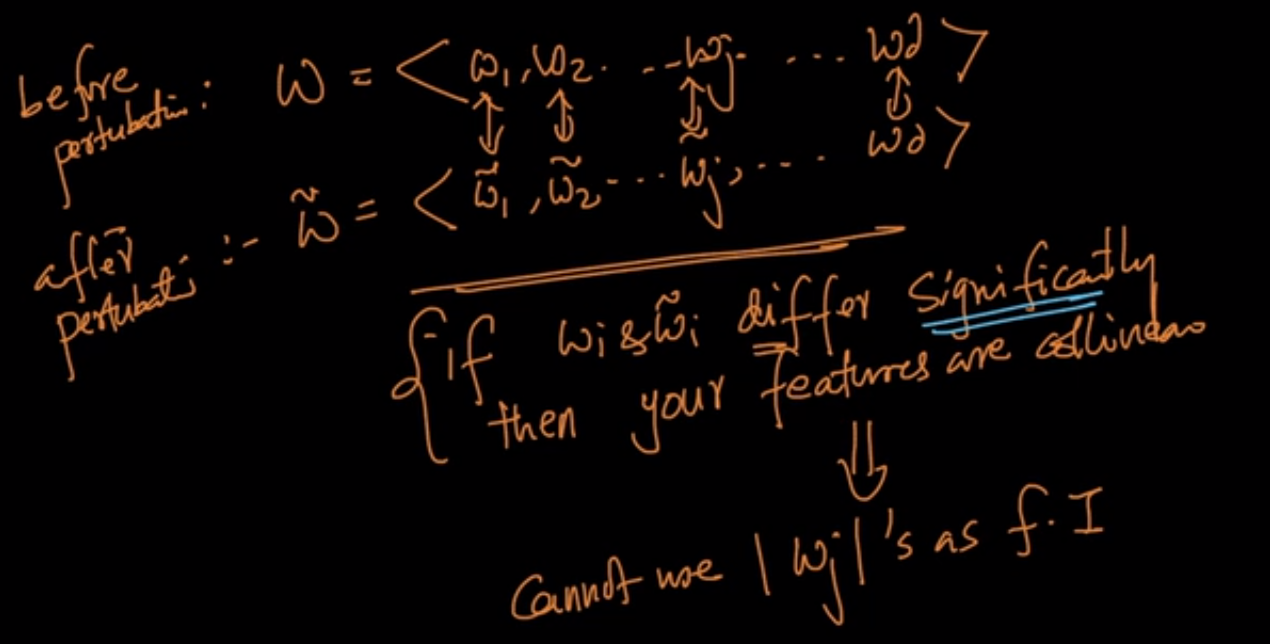 before
pertubatin:
W = < ω₁, ω₂. ...wj. ... wd >
↕ ↕ ↕ ↕
after
pertubati :- ω̃ = < ω̃₁, ω̃₂... w̃j, .... wd >
{if wi & w̃i differ significantly
then your features are collinear
⇓
Cannot use |wj|'s as f.I